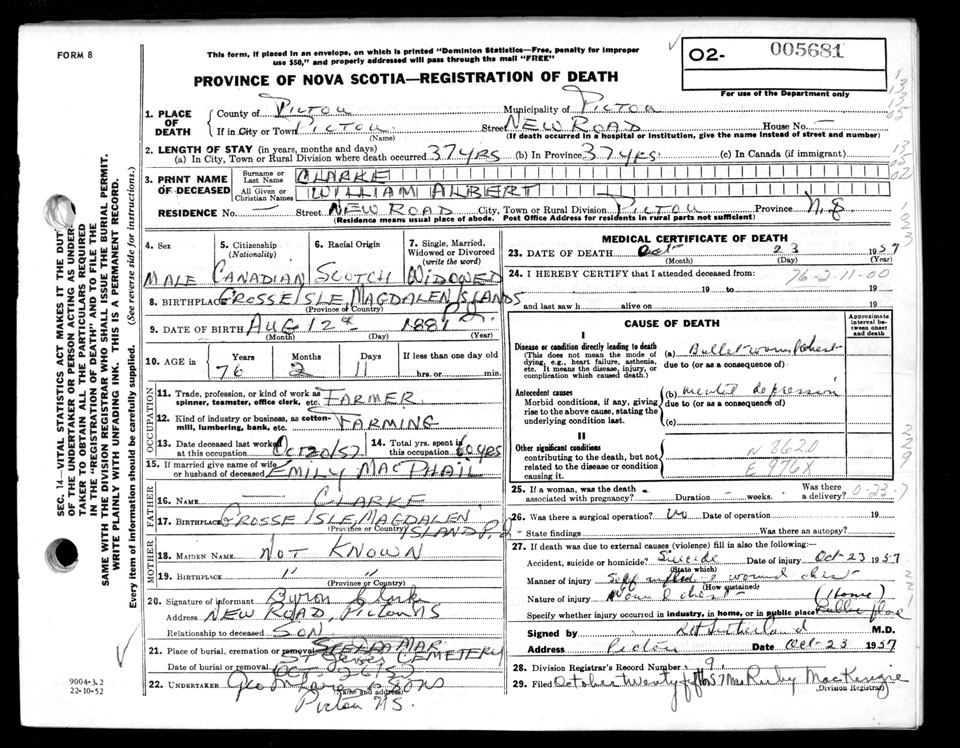 FORM 8
This form, if placed in an envelope, on which is printed "Dominion Statistics—Free, penalty for improper
use $50," and properly addressed will pass through the mail "FREE"
PROVINCE OF NOVA SCOTIA—REGISTRATION OF DEATH
O2- 005681
For use of the Department only
SEC. 14—VITAL STATISTICS ACT MAKES IT THE DUTY
OF THE UNDERTAKER OR PERSON ACTING AS UNDER-
TAKER TO OBTAIN ALL THE PARTICULARS REQUIRED
IN THE "REGISTRATION OF DEATH" AND TO FILE THE
SAME WITH THE DIVISION REGISTRAR WHO SHALL ISSUE THE BURIAL PERMIT.
WRITE PLAINLY WITH UNFADING INK. THIS IS A PERMANENT RECORD.
Every item of information should be carefully supplied. (See reverse side for instructions.)
1. PLACE OF DEATH
County of PICTOU Municipality of PICTOU
If in City or Town PICTOU Street NEW ROAD House No. —
(Name) (If death occurred in a hospital or institution, give the name instead of street and number)
2. LENGTH OF STAY (in years, months and days)
(a) In City, Town or Rural Division where death occurred 37 YRS (b) In Province 37 YRS (c) In Canada (if immigrant)
3. PRINT NAME OF DECEASED
Surname or Last Name CLARKE
All Given or Christian Names WILLIAM ALBERT
RESIDENCE No. — Street NEW ROAD City, Town or Rural Division PICTOU Province N.S
(Residence means usual place of abode. Post Office Address for residents in rural parts not sufficient)
4. Sex
MALE
5. Citizenship (Nationality)
CANADIAN
6. Racial Origin
SCOTCH
7. Single, Married, Widowed or Divorced (write the word)
WIDOWED
8. BIRTHPLACE GROSSE ISLE, MAGDALEN ISLANDS P.Q.
(Province or Country)
9. DATE OF BIRTH AUG 12th 1881
(Month) (Day) (Year)
10. AGE in Years 76 Months 2 Days 11 If less than one day old hrs. or min.
OCCUPATION
11. Trade, profession, or kind of work as spinner, teamster, office clerk, etc. FARMER
12. Kind of industry or business, as cotton-mill, lumbering, bank, etc. FARMING
13. Date deceased last worked at this occupation Oct 20/57
14. Total yrs. spent in this occupation 60 YRS
15. If married give name of wife or husband of deceased EMILY MACPHAIL
FATHER
16. NAME — CLARKE
17. BIRTHPLACE GROSSE ISLE, MAGDALEN ISLAND P.Q
(Province or Country)
MOTHER
18. MAIDEN NAME NOT KNOWN
19. BIRTHPLACE " "
(Province or Country)
20. Signature of informant Byron Clark
Address NEW ROAD, PICTOU NS
Relationship to deceased SON
21. Place of burial, cremation or removal CEMETERY
Date of burial or removal OCT 26/57
22. UNDERTAKER Sons
(Name and address)
Pictou N.S.
9004-3.2
22-10-52
MEDICAL CERTIFICATE OF DEATH
23. DATE OF DEATH Oct 23 1957
(Month) (Day) (Year)
24. I HEREBY CERTIFY that I attended deceased from:
76-2-11-00
19 to 19
and last saw h alive on 19
CAUSE OF DEATH
Approximate interval between onset and death
I
Disease or condition directly leading to death
(This does not mean the mode of dying, e.g., heart failure, asthenia, etc. It means the disease, injury, or complication which caused death.)
(a) Bullet wound chest
due to (or as a consequence of)
Antecedent causes
Morbid conditions, if any, giving rise to the above cause, stating the underlying condition last.
(b) mental depression
due to (or as a consequence of)
(c)
II
Other significant conditions
contributing to the death, but not related to the disease or condition causing it.
N 8620
E 976X
25. If a woman, was the death associated with pregnancy? Duration weeks. Was there a delivery?
26. Was there a surgical operation? no Date of operation 19
State findings Was there an autopsy?
27. If death was due to external causes (violence) fill in also the following:—
Accident, suicide or homicide? Suicide Date of injury Oct-23 1957
(State which)
Manner of injury Self inflicted wound chest
(How sustained)
Nature of injury wound chest (Home)
Specify whether injury occurred in industry, in home, or in public place
Signed by Sutherland M.D.
Address Pictou Date Oct-23 1957
28. Division Registrar's Record Number 9
29. Filed October twenty fifth 1957 Mrs Ruby MacKenzie
(Division Registrar)